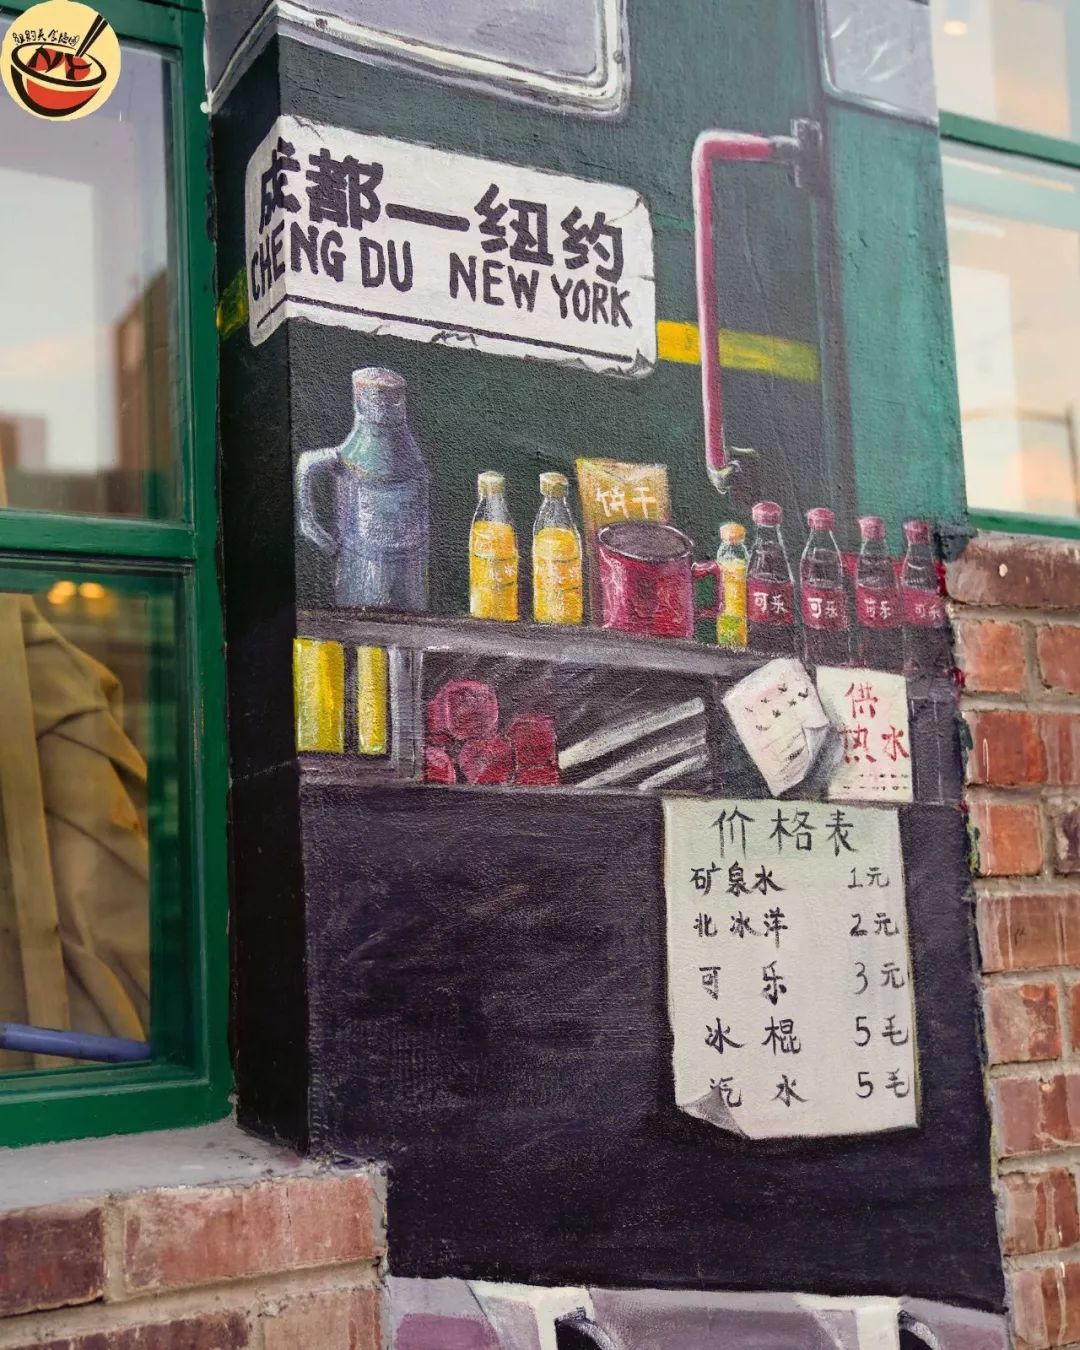 成都—纽约
CHENG DU NEW YORK
饼干
可乐
可乐
可乐
可乐
供
热水
价格表
矿泉水 1元
北冰洋 2元
可乐 3元
冰棍 5毛
汽水 5毛